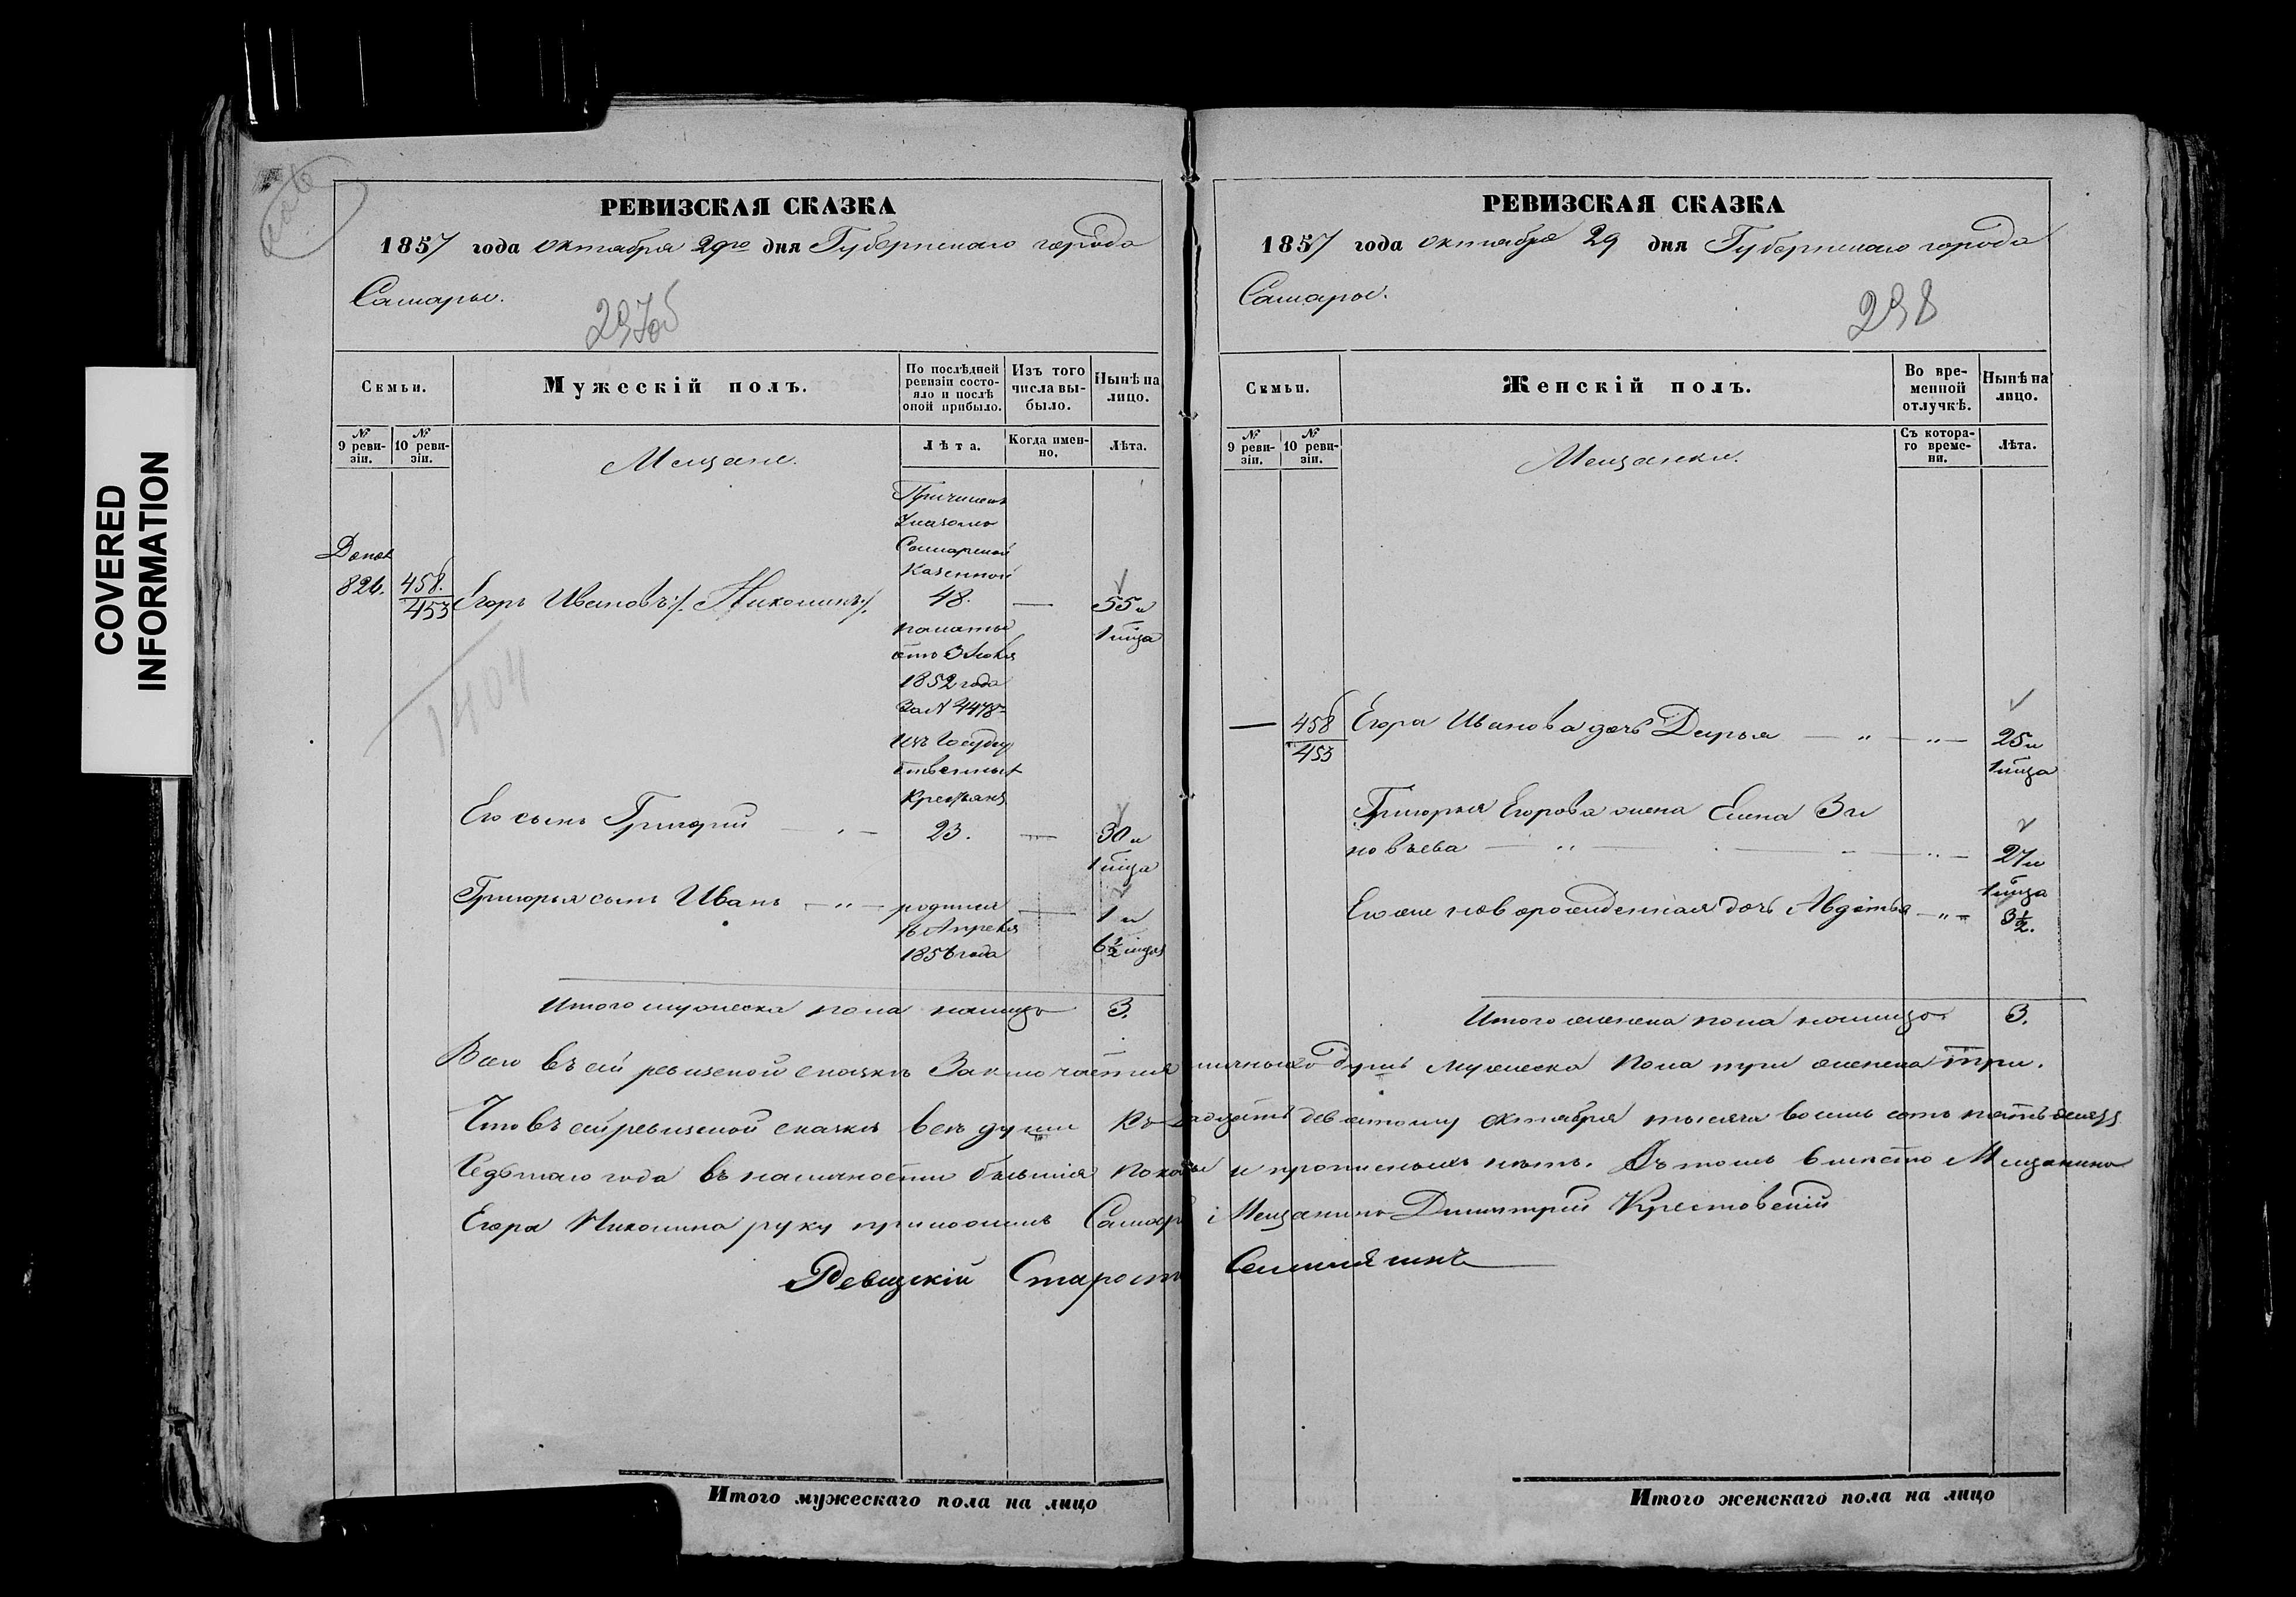 COVERED
INFORMATION
РЕВИЗСКАЯ СКАЗКА
1857 года Октября 29го дня Губернскаго города
Самары.
297об
Семьи.
Мужескій полъ.
По послѣдней ревизіи состояло и послѣ оной прибыло.
Изъ того числа выбыло.
Нынѣ на лицо.
№ 9 ревизіи.
№ 10 ревизіи.
Мещане.
Лѣта.
Когда именно.
Лѣта.
Причисленъ
Указомъ
Самарской
Казенной
Допол
824.
458.
453
Егоръ Ивановъ ./. Никошинъ ./.
48.
—
55 и
1 мца
палаты
отъ 3 Июля
1852 года
За N 4478
изъ Государ
ственныхъ
Крестьянъ
1404
Его сынъ Григорій — „ —
23.
—
30 и
1 мца
Григорья сынъ Иванъ — „ —
родился
16 Апреля
1856 года
—
1 и
6½ мцов
Итого мужеска пола налицо 3.
РЕВИЗСКАЯ СКАЗКА
1857 года Октября 29 дня Губернскаго города
Самары.
298
Семьи.
Женскій полъ.
Во временной отлучкѣ.
Нынѣ на лицо.
№ 9 ревизіи.
№ 10 ревизіи.
Мещанки.
Съ котораго времени.
Лѣта.
—
458
453
Егора Иванова дочь Дарья — „ — „ —
25 и
1 мца
Григорья Егорова жена Елена Зи
новъева — „ — „ —
27 и
1 мца
Ево же новорожденная дочь Авдотья — „ —
3½.
Итого женска пола налицо 3.
Всего въ сей ревизской сказкѣ Заключается личныхъ душъ мужеска пола три женска три.
Что въ сей ревизской сказкѣ всѣ души къ двадцать девятому Октября тысяча восемь сотъ пятьдесятъ
Седьмаго года въ наличности бывшія показаны и прописныхъ нѣтъ. Въ томъ вместо Мещанина
Егора Никошина руку приложилъ Самарс Мещанинъ Димитрій Крестовскій
Ревизскій Староста
Итого мужескаго пола на лицо
Итого женскаго пола на лицо